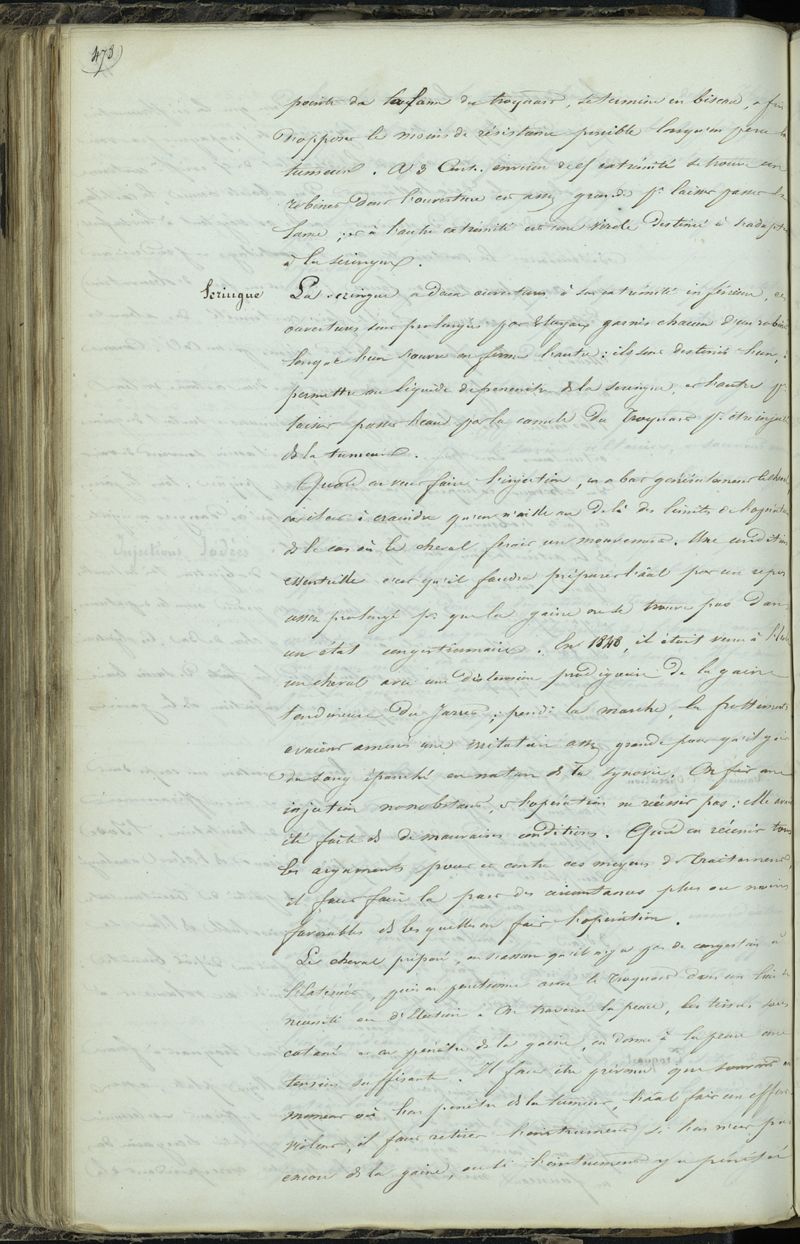 473
pointe de la lame du troquart, se termine en biseau, afin
d'opposer le moins de résistance possible lorsqu'on perce la
tumeur. A 3 Cent. environ de cette extrémité se trouve un
robinet dont l'ouverture est assez grande pr laisser passer la
lame; et à l'autre extrémité est une virole destinée à s'adapter
à la seringue.
Seringue
La seringue a deux ouvertures à son extrémité inférieure, ces
ouvertures sont prolongées par 2 tuyaux garnis chacun d'un robinet
lorsque l'un s'ouvre on ferme l'autre: ils sont destinés l'un, à
permettre au liquide de pénétrer ds la seringue, et l'autre pr
laisser passer l'eau par la canule du troquart pr être injecté
ds la tumeur.
Quand on veut faire l'injection, on abat généralement le cheval,
car il est à craindre qu'on n'aille au delà des limites de l'opération
ds le cas où le cheval ferait un mouvement. Une condition
essentielle c'est qu'il faudra préparer l'aãl par un repos
assez prolongé pr que la gaine ne se trouve pas dans
un état congestionnaire. En 1848, il était venu à l'École
un cheval avec une distension prodigieuse de la gaine
tendineuse du Jarret; pendt la marche, les frottements
avaient amené une irritation assez grande pour qu'il y eut
du sang épanché en nature ds la synovie. On fit une
injection nonobstant, et l'opération ne réussit pas: elle avait
été faite ds de mauvaises conditions. Quand on réunit tous
les arguments pour et contre ces moyens de traitement,
il faut faire la part des circonstances plus ou moins
favorables ds lesquelles on fait l'opération.
Le cheval préparé, on s'assure qu'il n'y a pas de congestion à
l'extérieur, puis on ponctionne avec le troquart dans un lieu de
nécessité ou d'élection. On traverse la peau, les tissus sous
cutané et on pénètre ds la gaine, on donne à la peau une
tension suffisante. Il faut être prévenu que souvent au
moment où l'on pénètre ds la tumeur, l'aãl fait un effort
violent, il faut retirer l'instrument si l'on n'est pas
encore ds la gaine, ou si l'instrument y a pénétré